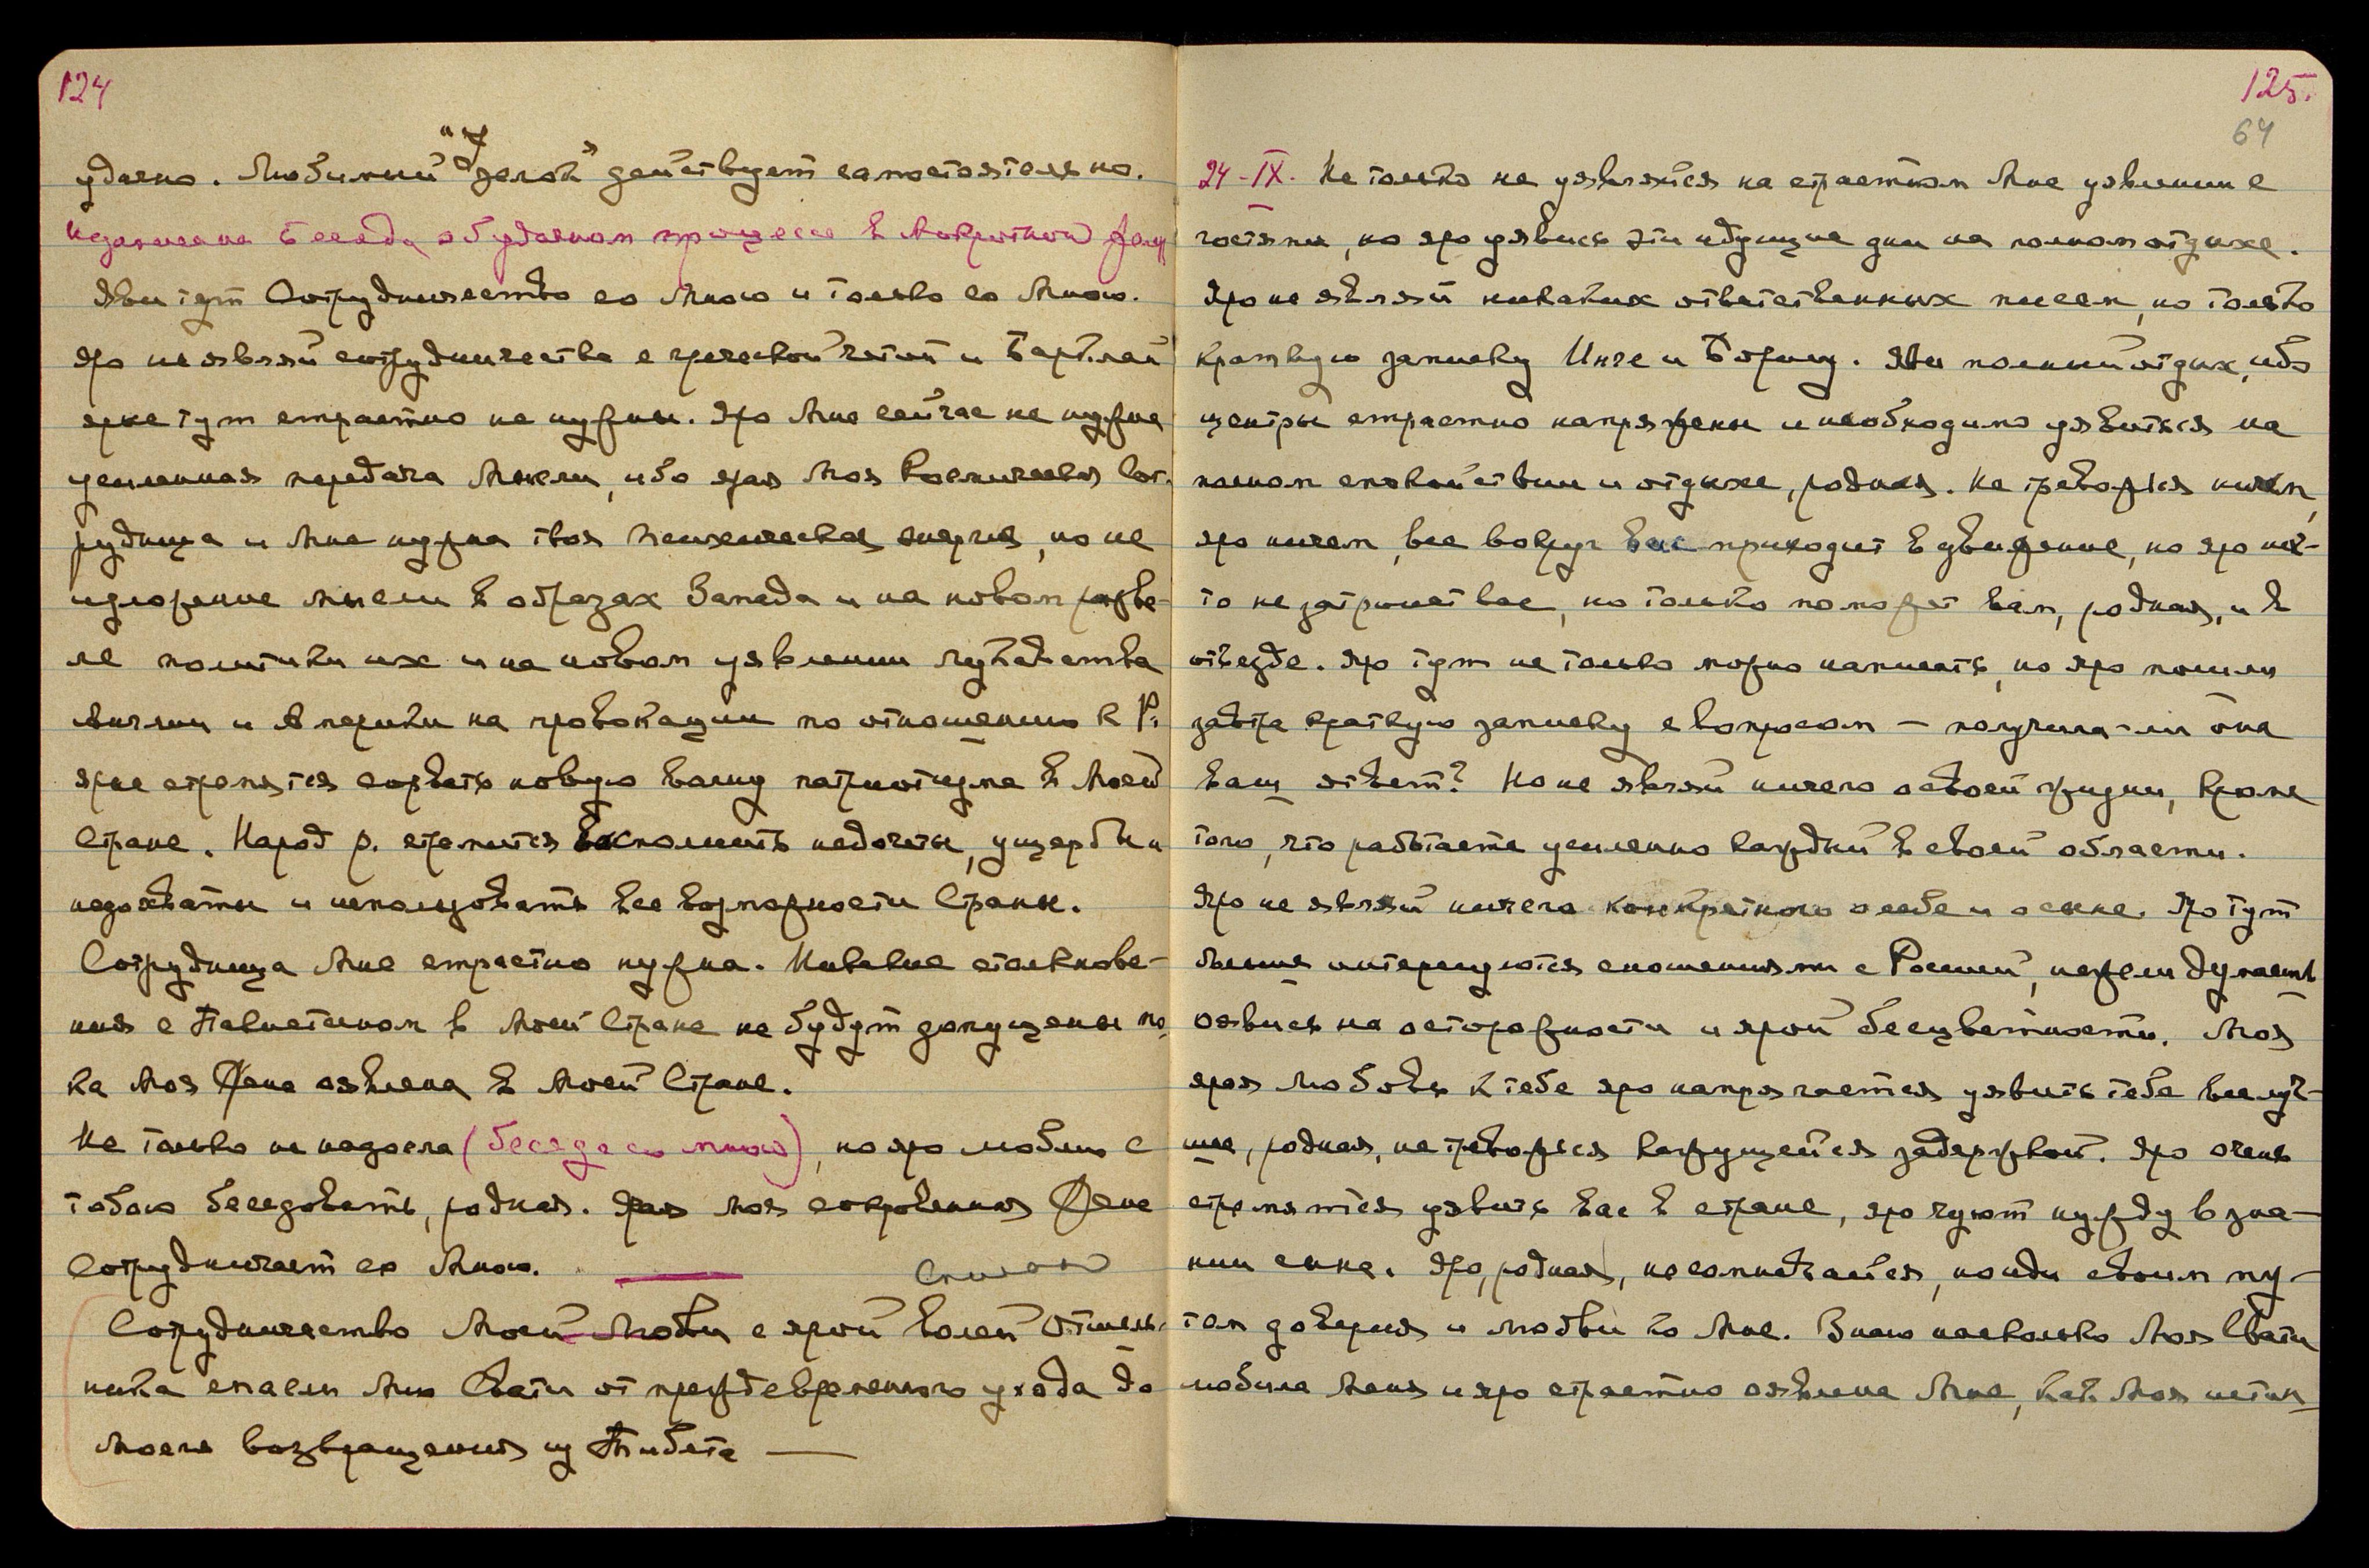 124
удачно. Любимый "Зелок" действует самостоятельно.
Незаписана беседа о будочном процессе в
Яви тут Сотрудничество со Мною и только со Мною.
Яро не являй сотрудничества с греческой четой и Барклай
ярые тут страстно не нужны. Яро Мне сейчас не нужна
усиленная передача Мысли, ибо ярая Моя Космическая Сот-
рудница и Мне нужна твоя психическая энергия, но не
изложение мысли в образах Запада и на новом
ле политики их и на новом уявлении чувства
Англии и Америки на провокации по отношению к Р.
ярые стремятся сорвать новую волну патриотизма в Моей
Стране. Народ р. стремится восполнить недочеты, ущербы и
недохваты и использовать все возможности Страны.
Сотрудница Мне страстно нужна. Никакие столкнове-
ния с Пакистаном в Моей Стране не будут допущены по-
ка Моя Жена оявлена в Моей Стране.
Не только не надоела (беседа со мною), но яро люблю с
тобою беседовать, родная. Ярая моя сокровенная Жена
Сотрудничает со Мною.
Сотрудничество Моей Любви с ярой волей Отшель-
ника спасли Мою Свати от преждевременного ухода до
Моего возвращения из Тибета —
125.
64
24-IX. Не только не уявляйся на страстном Мне уявлении с
гостями, но яро уявись эти идущие дни на полном отдыхе.
Яро не являй никаких ответственных писем, но только
краткую записку Инге и Борису. Яви полный отдых, ибо
центры страстно напряжены и необходимо уявиться на
полном спокойствии и отдыхе, родная. Не тревожься ничем,
яро ничем, все вокруг вас приходит в движение, но яро нич-
то не затронет вас, но только поможет вам, родная, и в
отъезде. Яро тут не только можно написать, но яро пошли
завтра краткую записку с вопросом — получила-ли она
ваш ответ? Но не являй ничего о своей жизни, кроме
того, что работаете усиленно каждый в своей области.
Яро не являй ничего конкретного о себе и о сыне. Яро тут
больше интересуются сношениями с Россией, нежели думаешь
оявись на осторожности и ярой бесцветности. Моя
ярая Любовь к тебе яро напрягается уявить тебе все луч-
шее, родная, не тревожься кажущейся задержкой. Яро очень
стремятся уявить вас в стране, яро чуют нужду в зна-
нии сына. Яро, родная, не сомневайся, но иди своим пу-
тем доверия и любви ко Мне. Знаю насколько Моя Свати
любила Меня и яро страстно оявлена Мне, как Моя истин-